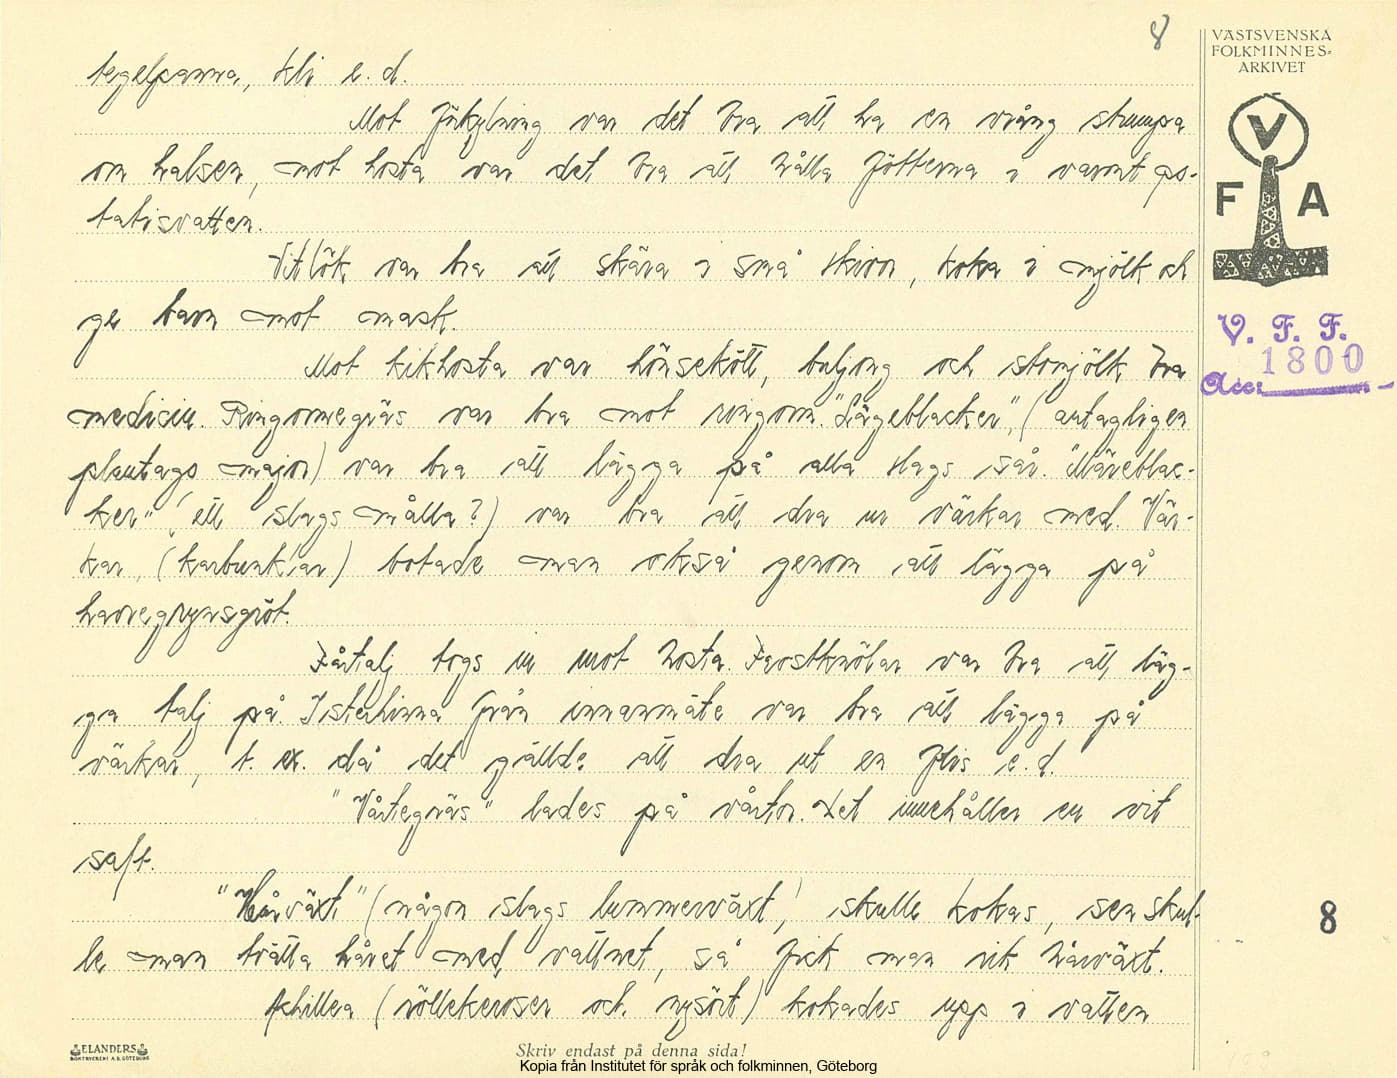 8
VÄSTSVENSKA
FOLKMINNES=
ARKIVET
V
F A
V. F. F.
1800
Acc:
tegelpanna, kli e. d.
Mot förkylning var det bra att ha en vrång strumpa
om halsen, mot hosta var det bra att hålla fötterna i varmt po-
tatisvatten.
Vitlök var bra att skära i små skivor, koka i mjölk och
ge barn mot mask.
Mot kikhosta var hönsekött, buljong och stomjölk bra
medicin. Ringormegräs var bra mot ringorm. "Lägeblacker", (antagligen
plantago major) var bra att lägga på alla slags sår. "Märeblac-
ker" (ett slags målla?) var bra att dra ur värkar med. Vär-
kar, (karbunklar) botade man också genom att lägga på
havregrynsgröt.
Fårtalj togs in mot hosta. Frostknölar var bra att läg-
ga talj på. Isterhinna från innanmäte var bra att lägga på
värkar, t. ex. då det gällde att dra ut en flis e. d.
"Vårtegräs" lades på vårtor. Det innehåller en vit
saft.
"Hårväxt" (någon slags lummerväxt) skulle kokas, sen skul-
le man tvätta håret med vattnet, så fick man rik hårväxt.
Achillea (röllekeroser och nysört) kokades upp i vatten
8
ELANDERS
BOKTRYCKERI A.B. GÖTEBORG
Skriv endast på denna sida!
Kopia från Institutet för språk och folkminnen, Göteborg